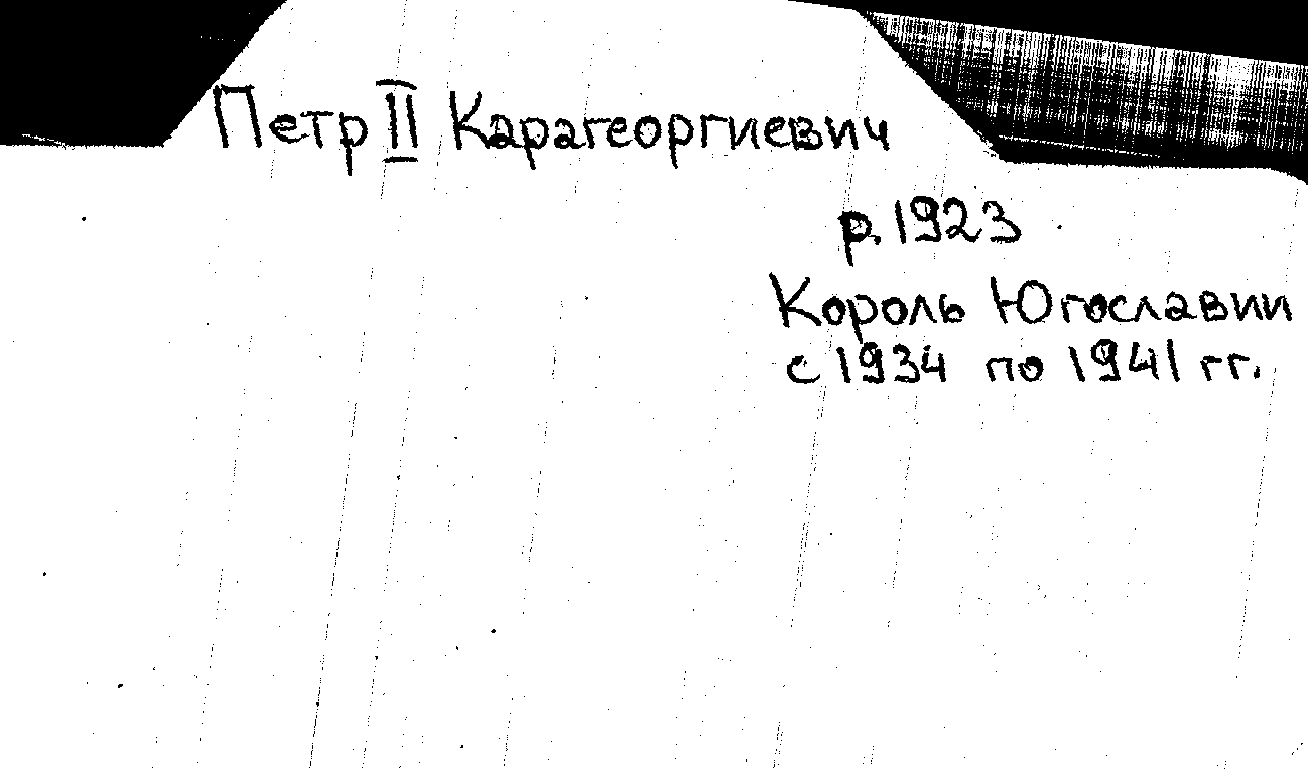 Петр II Карагеоргиевич
р. 1923
Король Югославии
с 1934 по 1941 гг.